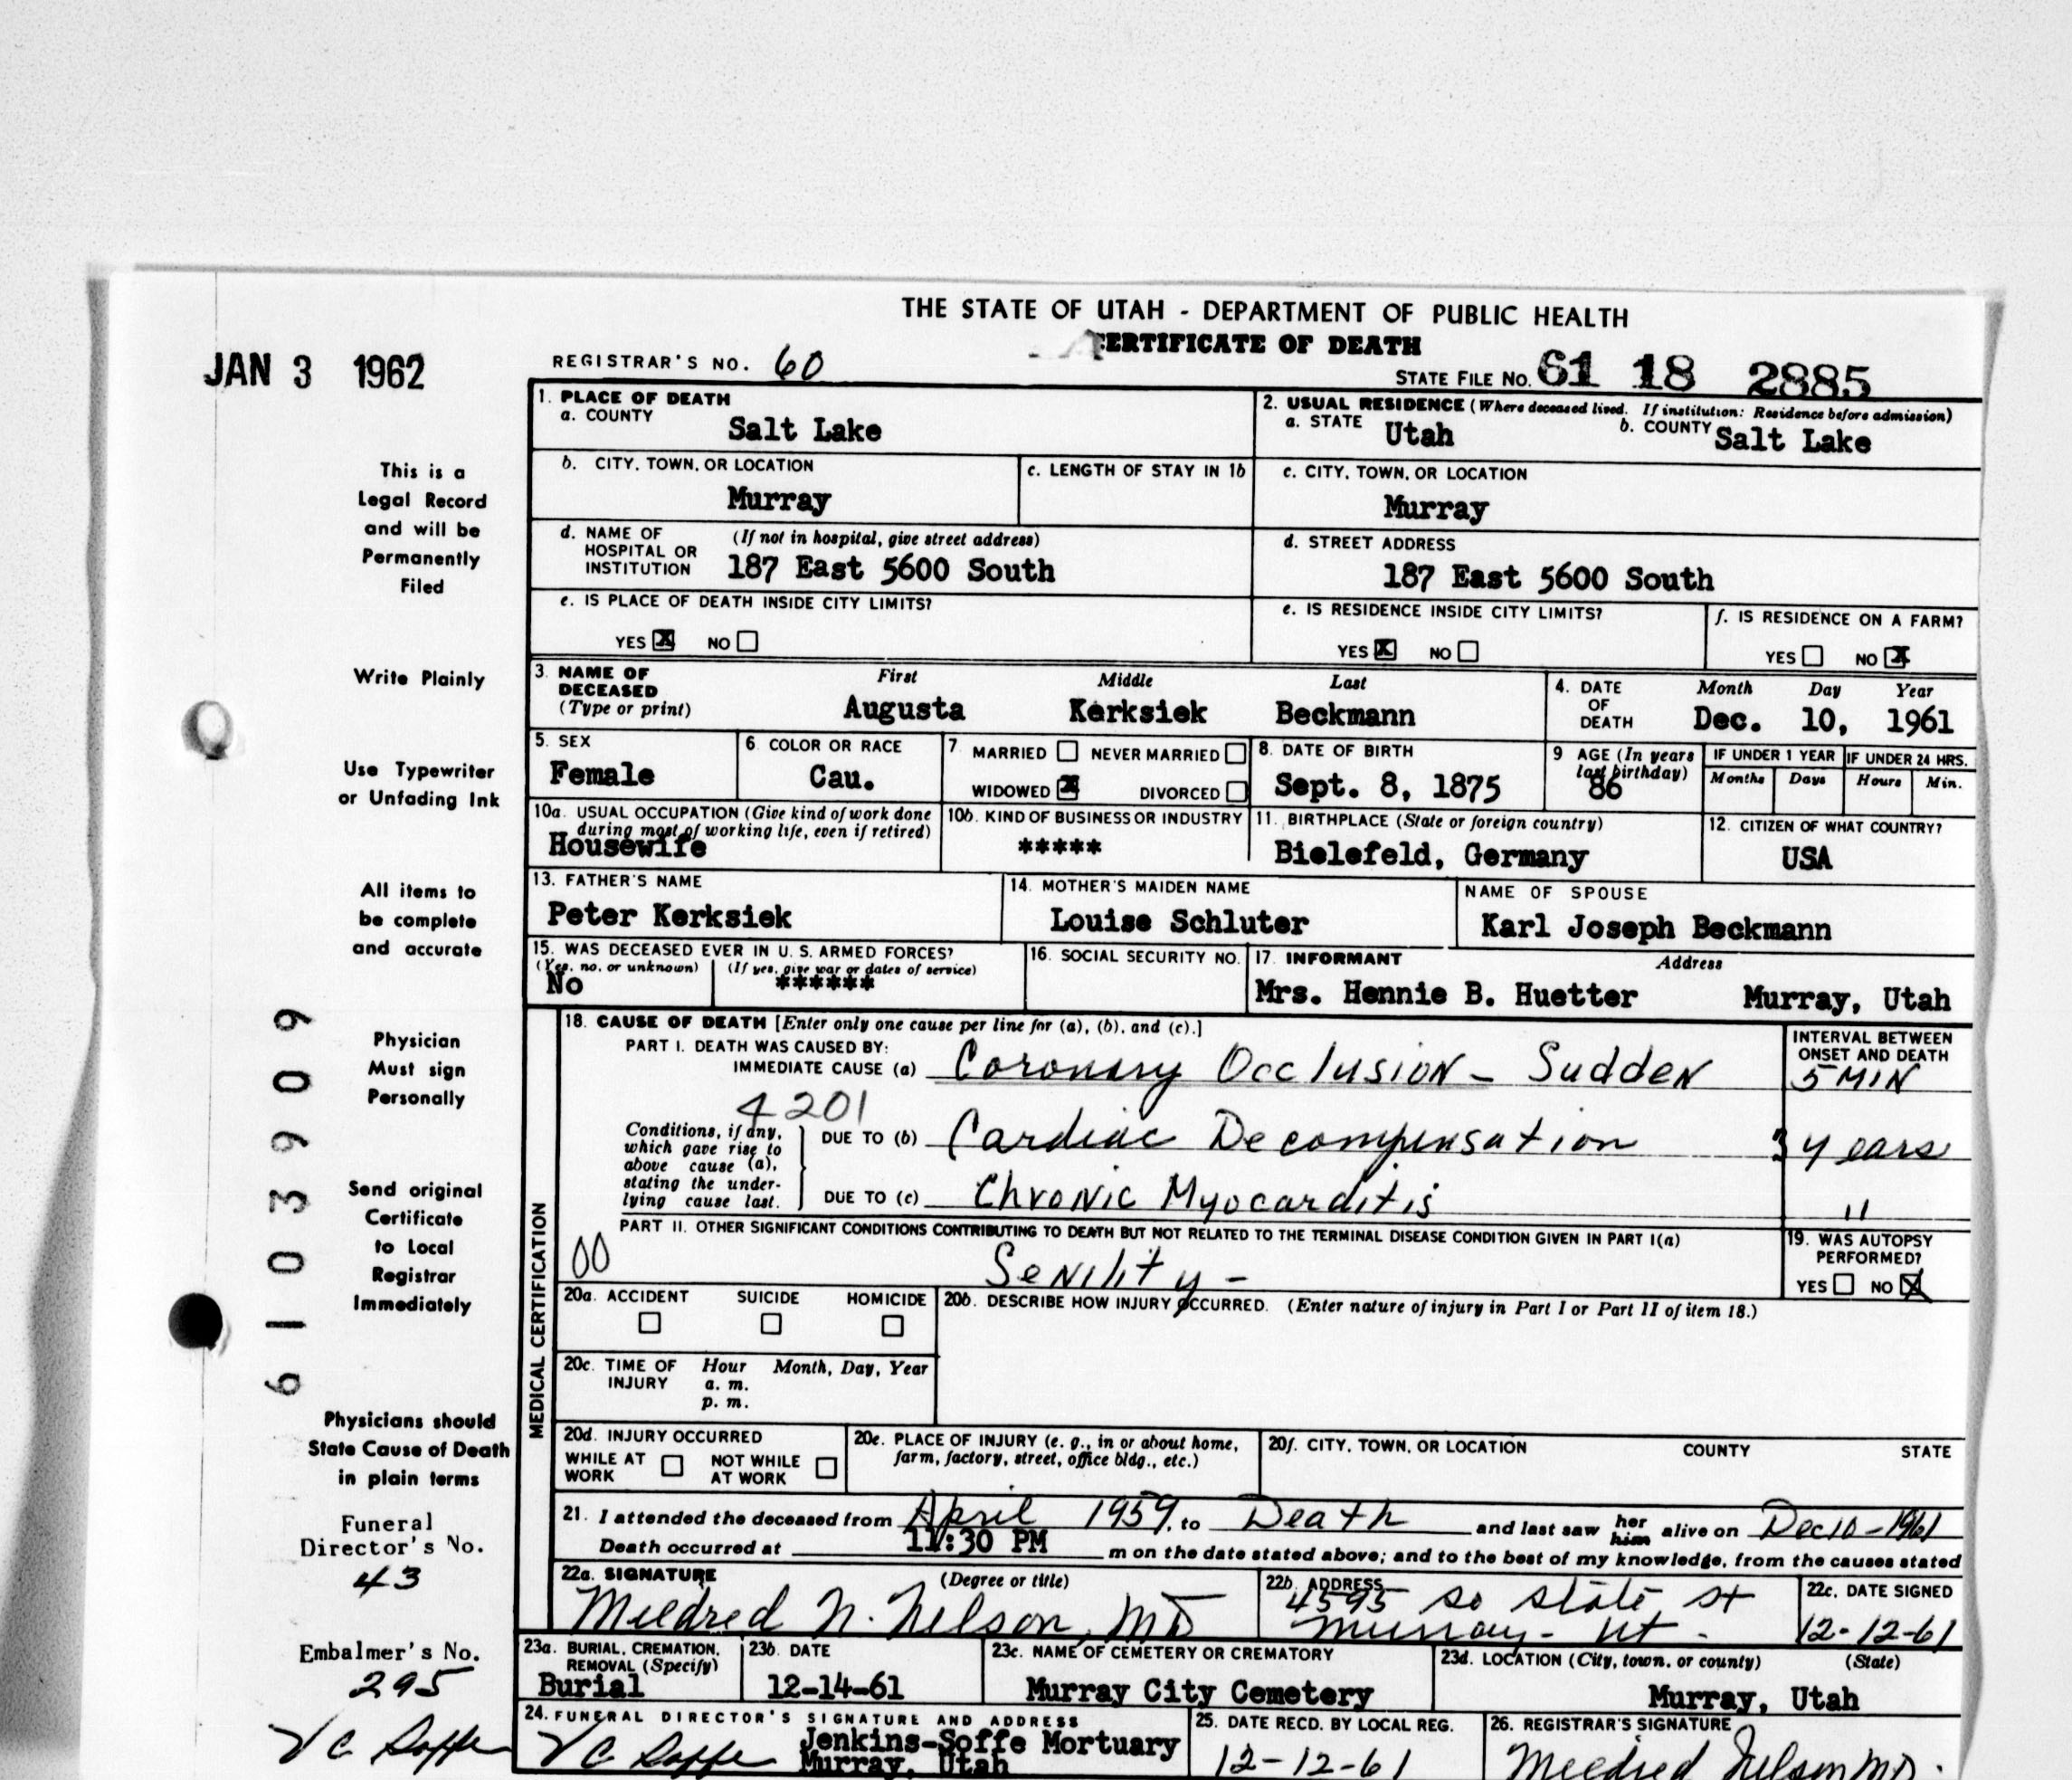 THE STATE OF UTAH - DEPARTMENT OF PUBLIC HEALTH
CERTIFICATE OF DEATH
JAN 3 1962
REGISTRAR'S NO. 60
STATE FILE NO. 61 18 2885
1. PLACE OF DEATH
a. COUNTY
Salt Lake
2. USUAL RESIDENCE (Where deceased lived. If institution: Residence before admission)
a. STATE Utah
b. COUNTY Salt Lake
b. CITY, TOWN, OR LOCATION
Murray
c. LENGTH OF STAY IN 1b
c. CITY, TOWN, OR LOCATION
Murray
d. NAME OF HOSPITAL OR INSTITUTION
(If not in hospital, give street address)
187 East 5600 South
d. STREET ADDRESS
187 East 5600 South
e. IS PLACE OF DEATH INSIDE CITY LIMITS?
YES X NO
e. IS RESIDENCE INSIDE CITY LIMITS?
YES X NO
f. IS RESIDENCE ON A FARM?
YES NO X
3. NAME OF DECEASED (Type or print)
First Middle Last
Augusta Kerksiek Beckmann
4. DATE OF DEATH
Month Day Year
Dec. 10, 1961
5. SEX
Female
6. COLOR OR RACE
Cau.
7. MARRIED NEVER MARRIED
WIDOWED X DIVORCED
8. DATE OF BIRTH
Sept. 8, 1875
9 AGE (In years last birthday)
86
IF UNDER 1 YEAR
Months Days
IF UNDER 24 HRS.
Hours Min.
10a. USUAL OCCUPATION (Give kind of work done during most of working life, even if retired)
Housewife
10b. KIND OF BUSINESS OR INDUSTRY
*****
11. BIRTHPLACE (State or foreign country)
Bielefeld, Germany
12. CITIZEN OF WHAT COUNTRY?
USA
13. FATHER'S NAME
Peter Kerksiek
14. MOTHER'S MAIDEN NAME
Louise Schluter
NAME OF SPOUSE
Karl Joseph Beckmann
15. WAS DECEASED EVER IN U. S. ARMED FORCES?
(Yes, no, or unknown)
No
(If yes, give war or dates of service)
******
16. SOCIAL SECURITY NO.
17. INFORMANT Address
Mrs. Hennie B. Huetter Murray, Utah
MEDICAL CERTIFICATION
18. CAUSE OF DEATH [Enter only one cause per line for (a), (b), and (c).]
PART I. DEATH WAS CAUSED BY:
IMMEDIATE CAUSE (a) Coronary Occlusion - Sudden
INTERVAL BETWEEN ONSET AND DEATH
5 MIN
4201
Conditions, if any, which gave rise to above cause (a), stating the underlying cause last.
DUE TO (b) Cardiac Decompensation
3 years
DUE TO (c) Chronic Myocarditis
"
PART II. OTHER SIGNIFICANT CONDITIONS CONTRIBUTING TO DEATH BUT NOT RELATED TO THE TERMINAL DISEASE CONDITION GIVEN IN PART I(a)
00
Senility -
19. WAS AUTOPSY PERFORMED?
YES NO X
20a. ACCIDENT SUICIDE HOMICIDE
20b. DESCRIBE HOW INJURY OCCURRED. (Enter nature of injury in Part I or Part II of item 18.)
20c. TIME OF INJURY
Hour Month, Day, Year
a. m.
p. m.
20d. INJURY OCCURRED
WHILE AT WORK NOT WHILE AT WORK
20e. PLACE OF INJURY (e. g., in or about home, farm, factory, street, office bldg., etc.)
20f. CITY, TOWN, OR LOCATION COUNTY STATE
21. I attended the deceased from April 1959, to Death and last saw her him alive on Dec 10-1961
Death occurred at 11:30 PM m on the date stated above; and to the best of my knowledge, from the causes stated
22a. SIGNATURE (Degree or title)
Mildred N. Nelson, MD
22b. ADDRESS
4595 So State St
Murray - Ut -
22c. DATE SIGNED
12-12-61
23a. BURIAL, CREMATION, REMOVAL (Specify)
Burial
23b. DATE
12-14-61
23c. NAME OF CEMETERY OR CREMATORY
Murray City Cemetery
23d. LOCATION (City, town, or county) (State)
Murray, Utah
24. FUNERAL DIRECTOR'S SIGNATURE AND ADDRESS
V C Soffe Jenkins-Soffe Mortuary
Murray, Utah
25. DATE RECD. BY LOCAL REG.
12-12-61
26. REGISTRAR'S SIGNATURE
Mildred Nelson MD.
This is a
Legal Record
and will be
Permanently
Filed
Write Plainly
Use Typewriter
or Unfading Ink
All items to
be complete
and accurate
Physician
Must sign
Personally
Send original
Certificate
to Local
Registrar
Immediately
Physicians should
State Cause of Death
in plain terms
Funeral
Director's No.
43
Embalmer's No.
295
V C Soffe
6103909